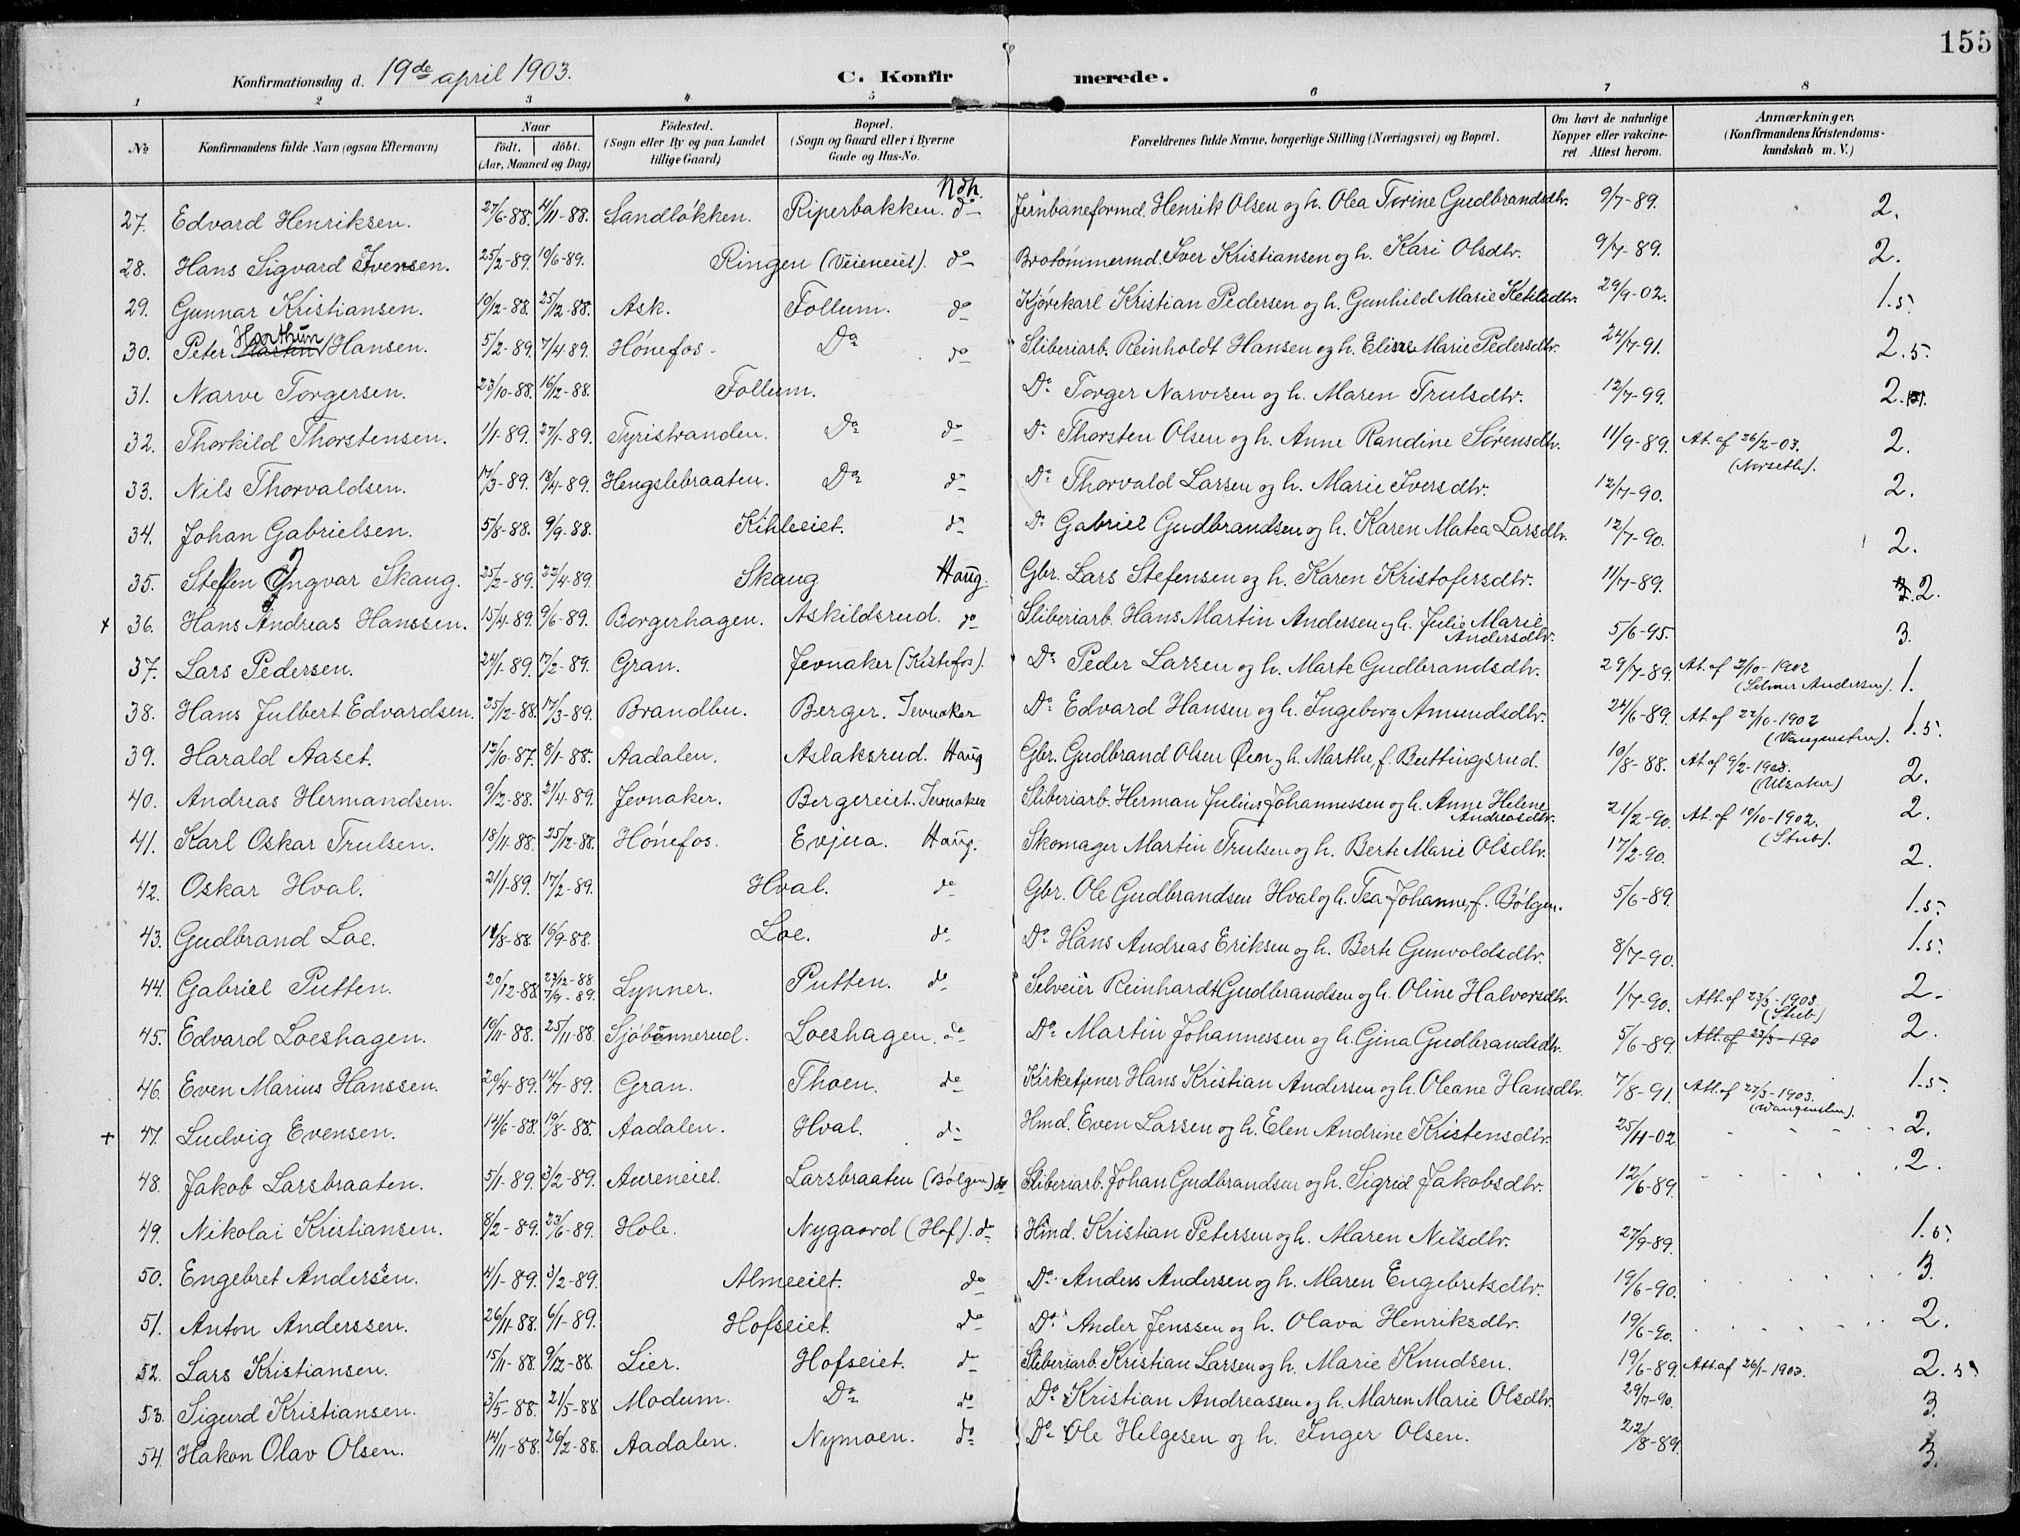 155
Konfirmationsdag d. 19de april 1903. C. Konfir merede.
1 2 3 4 5 6 7 8
No Konfirmandens fulde Navn (ogsaa Efternavn) Naar Født. døbt. (Aar, Maaned og Dag) Fødested. (Sogn eller By og paa Landet tillige Gaard) Bopæl. (Sogn og Gaard eller i Byerne Gade og Hus-No. Forældrenes fulde Navne, borgerlige Stilling (Næringsvei) og Bopæl. Om havt de naturlige Kopper eller vakcineret. Attest herom. Anmærkninger, (Konfirmandens Kristendomskundskab m. V.)
27. Edvard Henriksen. 27/6-88. 4/11-88. Sandløkken. Riperbakken. Ndh. do Jernbaneformd. Henrik Olsen og h. Olea Torine Gudbrandsdtr. 9/7-89. 2.
28. Hans Sigvard Ivensen. 25/2-89. 10/6-89. Ringen (Veieneiet). do Brotømmermd. Iver Kristiansen og h. Kari Olsdtr. 9/7-89. 2.
29. Gunnar Kristiansen. 10/2-88. 25/12-88. Ask. Follum. do Kjørekarl Kristian Pedersen og h. Gunhild Marie Ketilsdtr. 29/9-02. 1.5.
30. Peter Harthun Hansen. 5/2-89. 7/4-89. Hønefos. Do do Sliberiarb. Reinholdt Hansen og h. Elise Marie Pedersdtr. 24/7-91. 2.5.
31. Narve Torgersen. 23/10-88. 16/12-88. Follum. Do Torger Narvesen og h. Maren Trulsdtr. 12/7-99. 2.
32. Thorkild Thorstensen. 1/1-89. 27/1-89. Tyristranden. Do do Do Thorsten Olsen og h. Anne Randine Sørensdtr. 11/9-89. At. af 26/2-03. (Norseth). 2.
33. Nils Thorvaldsen. 17/3-89. 18/4-89. Hengslebraaten. Do do Do Thorvald Larsen og h. Marie Iversdtr. 12/7-90. 2.
34. Johan Gabrielsen. 5/8-88. 9/9-88. Kihleeiet. do Do Gabriel Gudbrandsen og h. Karen Matea Larsdtr. 12/7-90. 2.
35. Steffen Ingvar Skaug. 25/2-89. 22/4-89. Skaug Haug. Gbr. Lars Stefensen og h. Karen Kristofersdtr. 11/7-89. 2.
+ 36. Hans Andreas Hanssen. 15/4-89. 9/6-89. Borgerhagen. Askildsrud. do Sliberiarb. Hans Martin Andersen og h. Julie Marie Andersdtr. 5/6-95. 3.
37. Lars Pedersen. 24/1-89. 17/2-89. Gran. Jevnaker (Kistefos). Do Peder Larsen og h. Marte Gudbrandsdtr. 29/7-89. At. af 2/10-1902 (Selmer Andersen). 1.
38. Hans Julbert Edvardsen. 25/12-88. 17/3-89. Brandbu. Berger. Jevnaker Do Edvard Hansen og h. Ingeborg Amundsdtr. 24/6-89. At. af 22/10-1902 (Wangensten). 1.5.
39. Harald Aaset. 12/10-87. 8/1-88. Aadalen. Aslaksrud. Haug Gbr. Gudbrand Olsen Øen og h. Marthe, f. Buttingsrud. 10/8-88. At. af 9/2-1903. (Ulsaker) 2.
40. Andreas Hermandsen. 9/12-88. 21/4-89. Jevnaker. Bergereiet. Jevnaker Sliberiarb. Herman Julius Johannessen og h. Anne Helene Andreasdtr. 21/2-90. At. af 10/10-1902. (Stub). 2.
41. Karl Oskar Trulsen. 18/11-88. 25/12-88. Hønefos. Evjua. Haug. Skomager Martin Trulsen og h. Berte Marie Olsdtr. 17/2-90. 2.
42. Oskar Hval. 21/1-89. 17/2-89. Hval. do Gbr. Ole Gudbrandsen Hval og h. Tea Johanne, f. Bølgen. 5/6-89. 1.5.
43. Gudbrand Loe. 11/8-88. 16/9-88. Loe. do Do Hans Andreas Eriksen og h. Berte Gunvoldsdtr. 8/7-90. 1.5.
44. Gabriel Putten. 20/12-88. 23/12-88 7/9-89. Lynner. Putten. do Selveier Reinhardt Gudbrandsen og h. Oline Halvorsdtr. 1/7-90. Att. af 23/3-1903. (Stub) 2.
45. Edvard Loeshagen. 10/11-88. 25/11-88. Sjøbonnerud. Loeshagen. do Do Martin Johannessen og h. Gina Gudbrandsdtr. 5/6-89. Att. af 23/3-190 2.
46. Even Marius Hanssen. 20/4-89. 14/7-89. Gran. Thoen. do Kirketjener Hans Kristian Andersen og h. Oleane Hansdtr. 7/8-91. Att. af 27/3-1903. (Wangensten). 1.5.
+ 47. Ludvig Evensen. 14/6-88. 19/8-88. Aadalen. Hval. do Hmd. Even Larsen og h. Elen Andrine Kristensdtr. 25/11-02. 2.
48. Jakob Larsbraaten. 5/1-89. 3/2-89. Aureneiet. Larsbraaten (Bølgen) do Sliberiarb. Johan Gudbrandsen og h. Sigrid Jakobsdtr. 12/6-89. 2.
49. Nikolai Kristiansen. 8/2-89. 23/6-89. Hole. Nygaard (Hof). do Hmd. Kristian Petersen og h. Maren Nilsdtr. 27/9-89. 1.5.
50. Engebret Andersen. 4/1-89. 3/2-89. Almeeiet. do Do Anders Andersen og h. Maren Engebretsdtr. 19/6-90. 3.
51. Anton Anderssen. 26/11-88. 6/1-89. Hofseiet. do Do Ander Jenssen og h. Olava Henriksdtr. 19/6-90. 2.
52. Lars Kristiansen. 15/11-88. 9/12-88. Lier. Hofseiet. do Sliberiarb. Kristian Larsen og h. Marie Knudsen. 19/6-89. Att. af 26/1-1903. 2.5
53. Sigurd Kristiansen. 3/5-88. 21/5-88 Modum. Do do Do Kristian Andreassen og h. Maren Marie Olsdtr. 29/7-90. 3.
54. Hakon Olav Olsen. 14/11-88. 26/2-88. Aadalen. Nymoen. do Do Ole Helgesen og h. Inger Olsen. 22/8-89. 3.